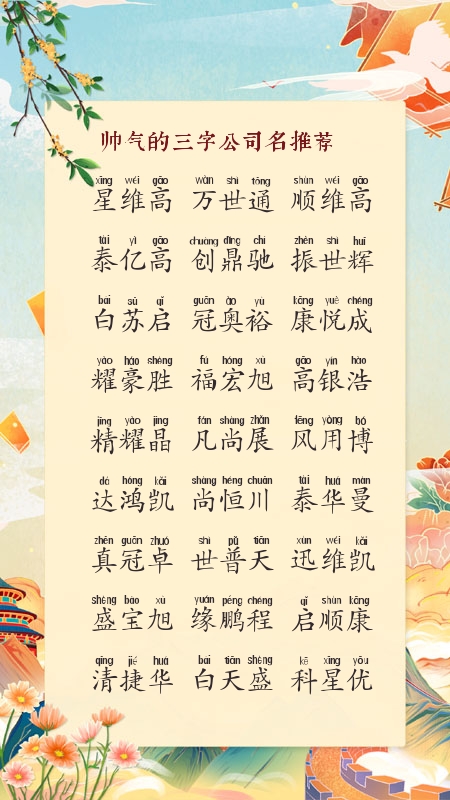 帅气的三字公司名推荐
xīng wéi gāo wàn shì tōng shùn wéi gāo
星维高 万世通 顺维高
tài yì gāo chuàng dǐng chí zhèn shì huī
泰亿高 创鼎驰 振世辉
bái sū qǐ guān ào yù kāng yuè chéng
白苏启 冠奥裕 康悦成
yào háo shèng fú hóng xù gāo yín hào
耀豪胜 福宏旭 高银浩
jīng yào jīng fán shàng zhǎn fēng yòng bó
精耀晶 凡尚展 风用博
dá hóng kǎi shàng héng chuān tài huá màn
达鸿凯 尚恒川 泰华曼
zhēn guān zhuó shì pǔ tiān xùn wéi kǎi
真冠卓 世普天 迅维凯
shèng bǎo xù yuán péng chéng qǐ shùn kāng
盛宝旭 缘鹏程 启顺康
qīng jié huá bái tiān shèng kē xīng yōu
清捷华 白天盛 科星优